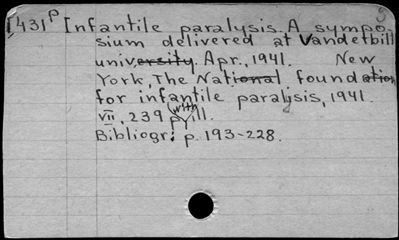 1,431ᵖ Infantile paralysis. A sympo-
sium delivered at Vanderbilt
university. Apr., 1941. New
York, The National foundation
for infantile paralysis, 1941.
vii, 239 p. with ill.
Bibliogr: p. 193-228.